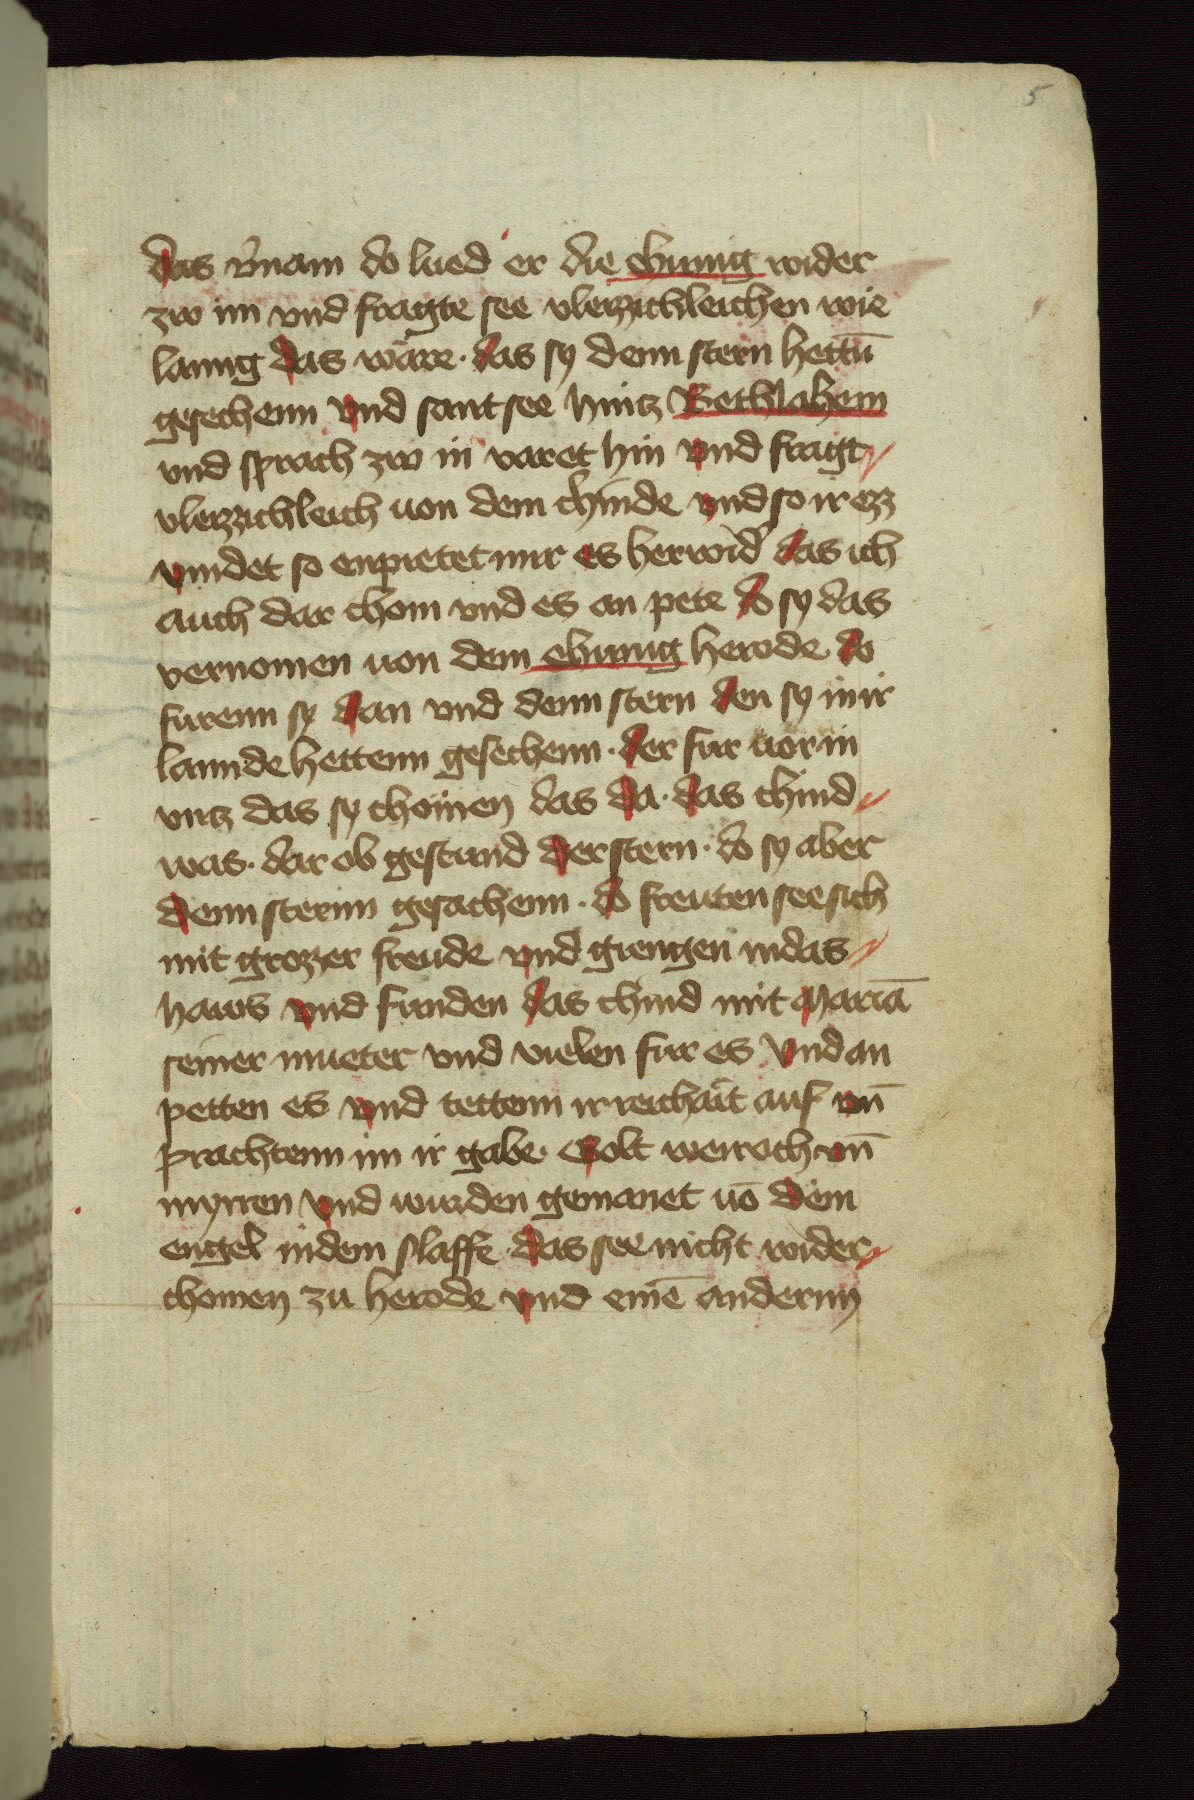 5
das v̄nam do lued er die chunig wider
zw im vnd fragte see vleizzichleichen wie
lanng das wäre · das sy denn stern hettn̄
gesechenn vnd sant see hintz Bethlahem
vnd sprach zw in varet hin vnd fragt
vleizzichleich uon dem chinde vnd so ir ezz
vindet so enpietet mir es herwid̄ das ich
auch dar chom vnd es an pete do sy das
vernomen uon dem chunig herode do
furenn sy dan vnd denn stern den sy in ir
lannde hettenn gesechenn · der fur uor in
vntz das sy chomen das da · das chind
was · dar ob gestund der stern · do sy aber
denn sternn gesachenn · do freuten see sich
mit grozzer freude vnd giengen in das
haws vnd funden das chind mit Mariā
seiner mueter vnd vielen fur es vnd an
petten es vnd tettenn ir reichait auf vn̄
prachtenn im ir gabe · Golt weiroch vn̄
myrren vnd wurden gemanet uō dem
engel in dem slaffe · das see nicht wider
chomen zu herode vnd einē andernn